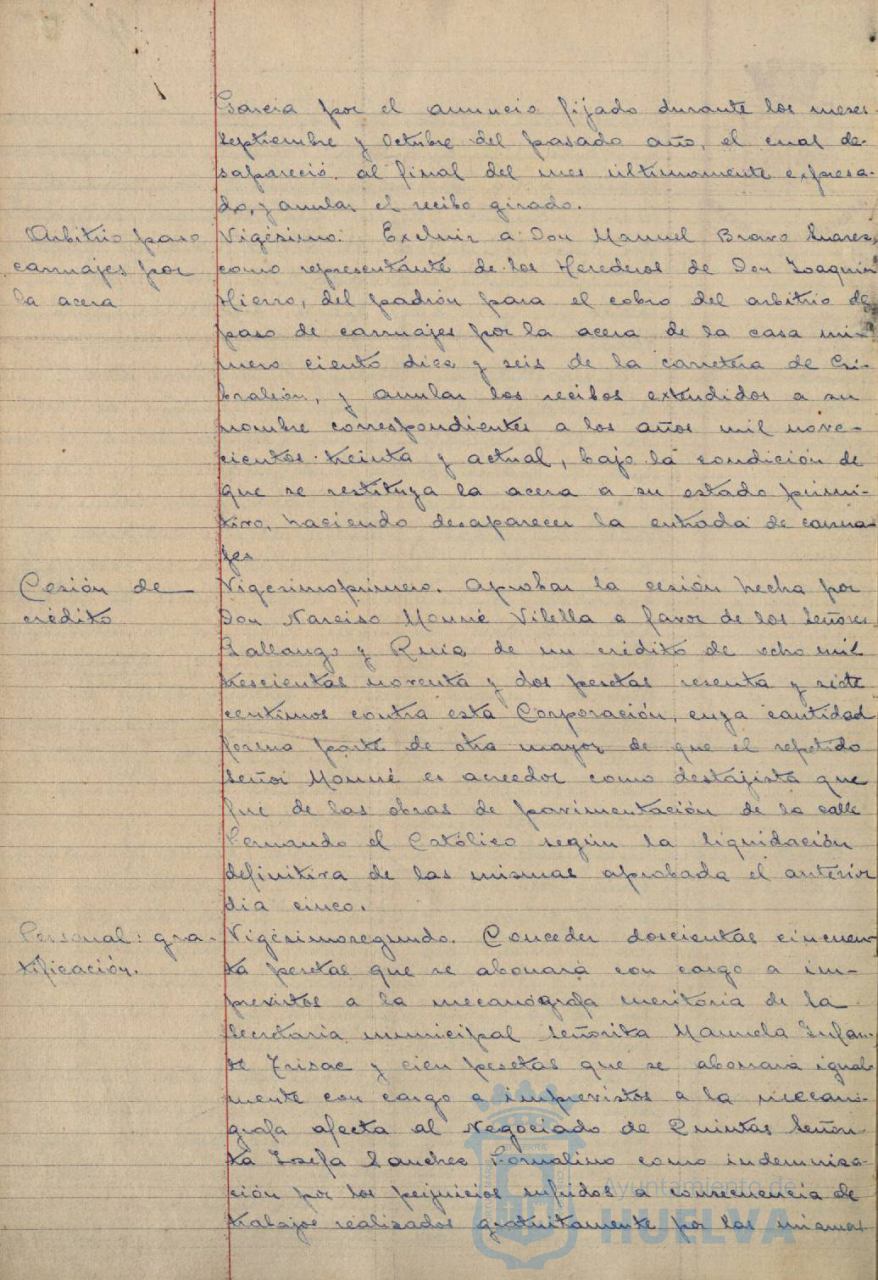 Garcia por el anuncio fijado durante los meses
septiembre y octubre del pasado año, el cual de-
sapareció al final del mes ultimamente expresa-
do, y anular el recibo girado.
Arbitrio paso
carruajes por
la acera
Vigésimo. Excluir a Don Manuel Bravo Suarez,
como representante de los Herederos de Don Joaquin
Hierro, del padrón para el cobro del arbitrio de
paso de carruajes por la acera de la casa nú-
mero ciento diez y seis de la carretera de Gi-
braleón, y anular los recibos extendidos a su
nombre correspondientes a los años mil nove-
cientos treinta y actual, bajo la condición de
que se restituya la acera a su estado primi-
tivo, haciendo desaparecer la entrada de carrua-
jes
Cesión de
crédito
Vigésimoprimero. Aprobar la cesión hecha por
Don Narciso Monné Vilella a favor de los Señores
Gallango y Ruiz, de un crédito de ocho mil
trescientas noventa y dos pesetas sesenta y siete
centimos contra esta Corporación, cuya cantidad
forma parte de otra mayor de que el repetido
Señor Monné es acreedor como destajista que
fue de las obras de pavimentación de la calle
Fernando el Católico según la liquidación
definitiva de las mismas aprobada el anterior
dia cinco.
Personal: gra-
tificación.
Vigésimosegundo. Conceder doscientas cincuen-
ta pesetas que se abonará con cargo a im-
previstos a la mecanógrafa meritoria de la
Secretaria municipal Señorita Manuela Infan-
te Trisac y cien pesetas que se abonará igual-
mente con cargo a imprevistos a la mecanó-
grafa afecta al Negociado de Quintas Señori-
ta Josefa Sanchez como indemniza-
ción por los perjuicios sufridos a consecuencia de
trabajos realizados gratuitamente por las mismas
Ayuntamiento de
HUELVA